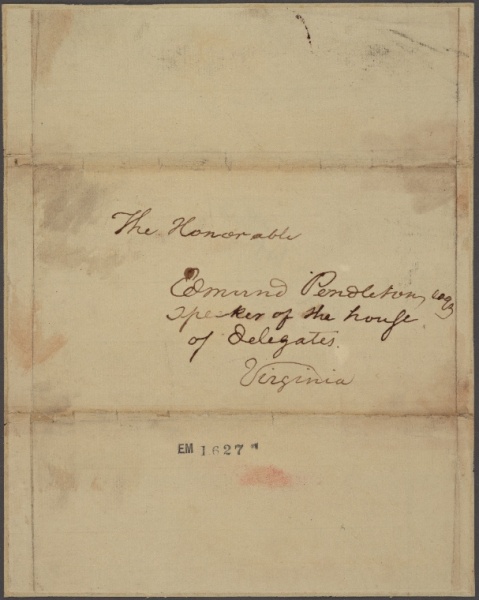 The Honorable
Edmund Pendleton, esq
speker of the house
of delegates.
Virginia
EM 1627